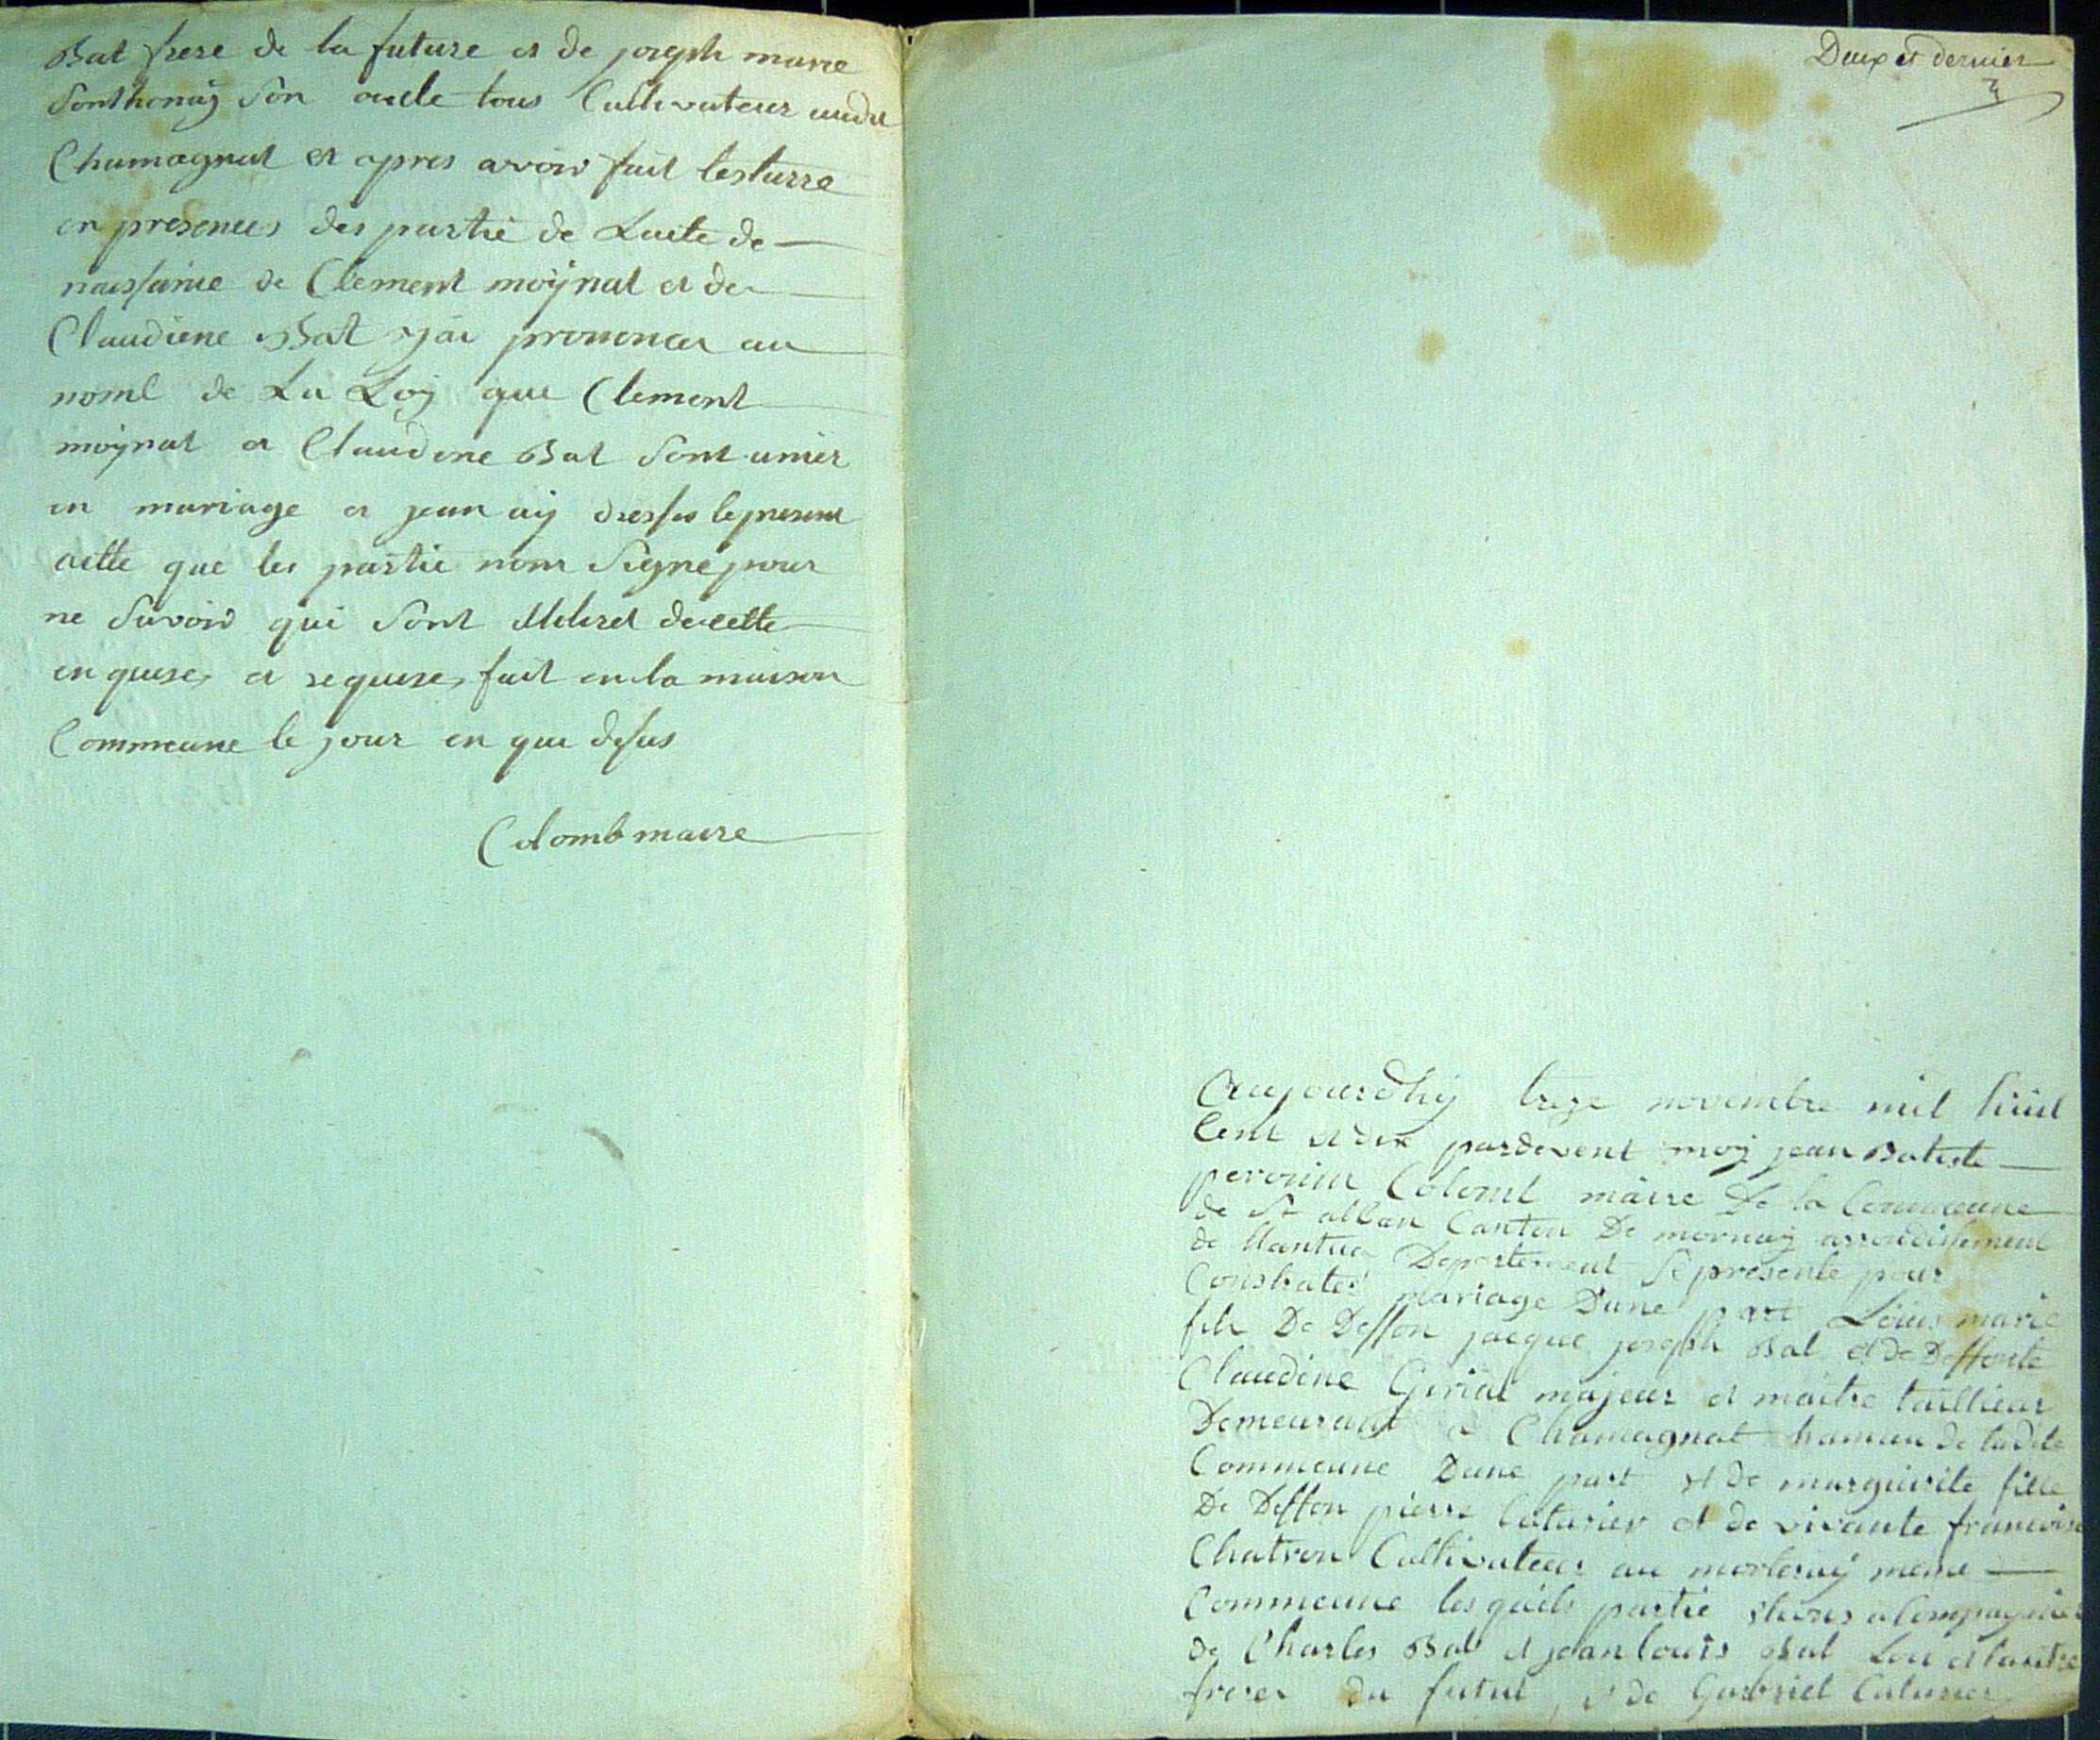 Bat frere de la future et de joseph marie
Sonthonaÿ Son oncle tous Cultivateur audit
Chamagnat et apres avoir fait lesturre
en presences des partie de Laite de
naissance de Clement moÿnat et de
Claudiene Bat jai prononcer au
nome de La Loÿ que Clement
moÿnat et Claudene Bat Sont unier
en mariage et jean aÿ dresses le present
aitte que les partie nont Signé pour
ne Savoir qui Sont illiteret de cette
en quise, et requise, fait en la maison
Commeune le jour en que desus
Colomb maire
Deux et dernier
Aujourdhÿ treze novembre mil huit
Cent et dix pardevent moÿ jean Batiste
perouin Colomt maire De la Commeune
de St alban Canton De mornaÿ arrondissement
de Nantua Departement Se presente pour
Constater mariage Dune part Louis marie
fils De Deffon jacque joseph Bat et De Deffonte
Claudine Girial majeur et maitre taillieur
Demeurant a Chamagnat hamau de ladite
Commeune Dune part et de marguirite fille
De Deffon pierre Caturier et de vivante francoise
Chatron Cultivateur au morlenaÿ meme
Commeune les quels partie alompagnies
de Charles Bat et jean louis Bat Lou et lautre
freres du futut, et de Gabriel Caturier